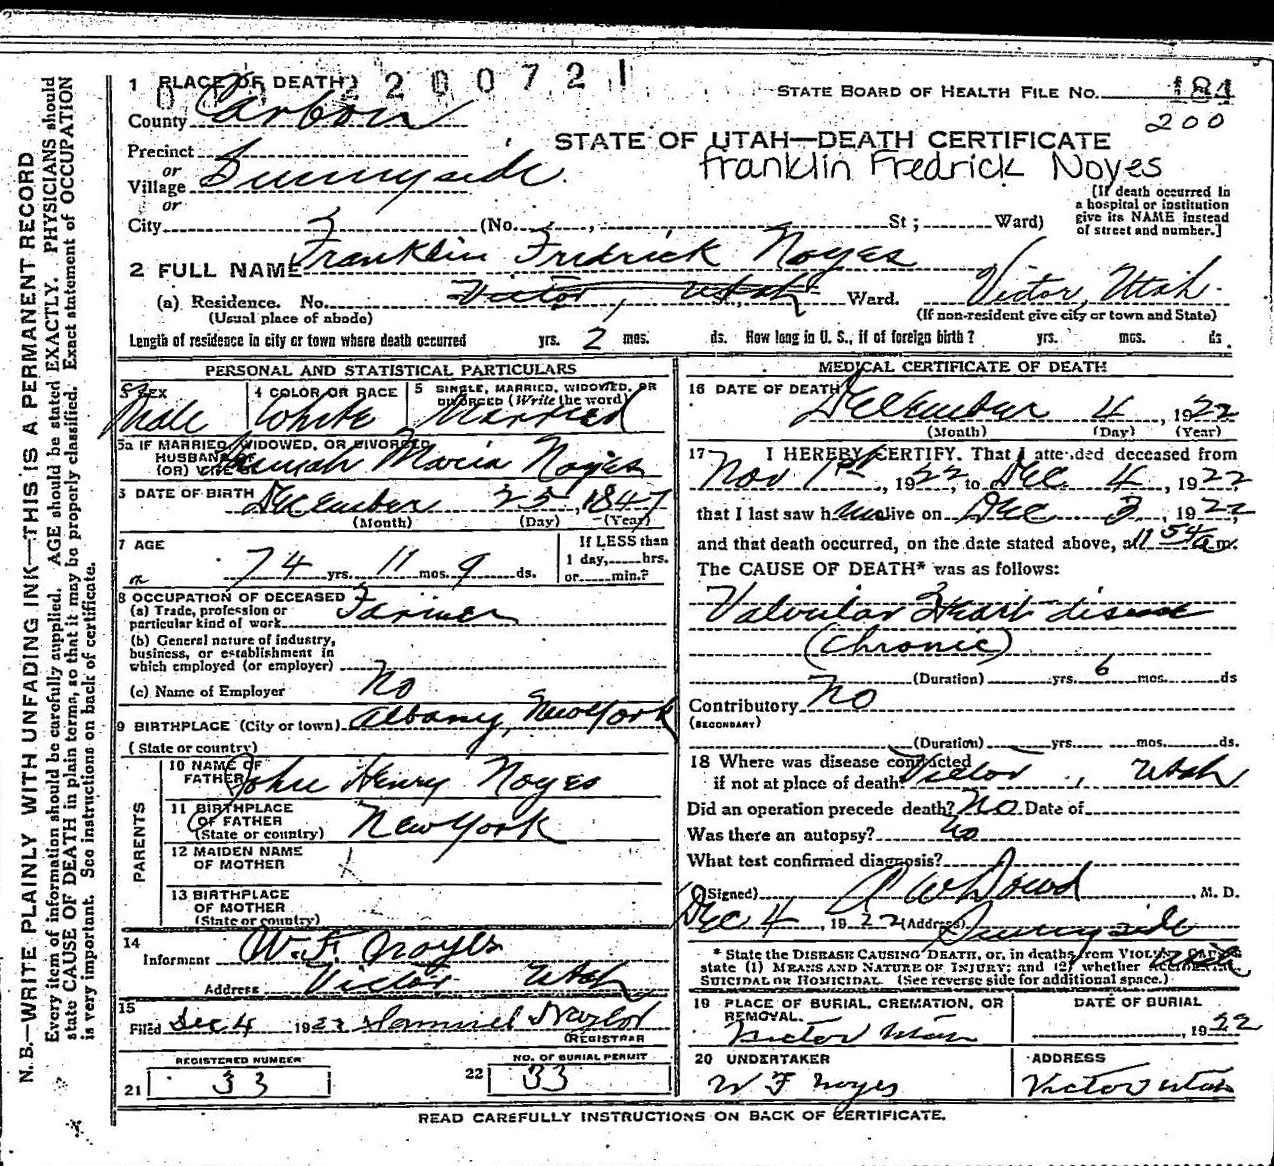 N. B.—WRITE PLAINLY WITH UNFADING INK—THIS IS A PERMANENT RECORD
Every item of information should be carefully supplied. AGE should be stated EXACTLY. PHYSICIANS should
state CAUSE OF DEATH in plain terms, so that it may be properly classified. Exact statement of OCCUPATION
is very important. See instructions on back of certificate.
1 PLACE OF DEATH 220072 1
STATE BOARD OF HEALTH FILE NO. 184
200
County Carbon
STATE OF UTAH—DEATH CERTIFICATE
Franklin Fredrick Noyes
Precinct
or
Village Sunnyside
or
[If death occurred in
a hospital or institution
give its NAME instead
of street and number.]
City (No. , St ; Ward)
2 FULL NAME Franklin Fredrick Noyes
(a) Residence. No. Victor, Utah Ward. Victor, Utah.
(Usual place of abode) (If non-resident give city or town and State)
Length of residence in city or town where death occurred yrs. 2 mos. ds. How long in U. S., if of foreign birth? yrs. mos. ds.
PERSONAL AND STATISTICAL PARTICULARS
3 SEX Male
4 COLOR OR RACE White
5 SINGLE, MARRIED, WIDOWED, OR
DIVORCED (Write the word)
Married
5a IF MARRIED, WIDOWED, OR DIVORCED
HUSBAND OF
(OR) WIFE OF Maria Noyes
6 DATE OF BIRTH December 25, 1847
(Month) (Day) (Year)
7 AGE
74 yrs. 11 mos. 9 ds.
If LESS than
1 day, hrs.
or min.?
8 OCCUPATION OF DECEASED
(a) Trade, profession or
particular kind of work Farmer
(b) General nature of industry,
business, or establishment in
which employed (or employer)
(c) Name of Employer No
9 BIRTHPLACE (City or town) Albany, New York
(State or country)
PARENTS
10 NAME OF
FATHER John Henry Noyes
11 BIRTHPLACE
OF FATHER
(State or country) New York
12 MAIDEN NAME
OF MOTHER
13 BIRTHPLACE
OF MOTHER
(State or country)
14
Informent W. F. Noyes
Address Victor Utah
15
Filed Dec 4 1922 Samuel Naylor
REGISTRAR
REGISTERED NUMBER
21 33
NO. OF BURIAL PERMIT
22 33
MEDICAL CERTIFICATE OF DEATH
16 DATE OF DEATH December 4, 1922
(Month) (Day) (Year)
17 I HEREBY CERTIFY. That I attended deceased from
Nov 1st, 1922, to Dec. 4, 1922
that I last saw him alive on Dec 3, 1922,
and that death occurred, on the date stated above, at 11 54 a.m.
The CAUSE OF DEATH* was as follows:
Valvular Heart disease
(Chronic)
(Duration) yrs. 6 mos. ds
Contributory No
(SECONDARY)
(Duration) yrs. mos. ds.
18 Where was disease contracted
if not at place of death? Victor, Utah
Did an operation precede death? No Date of
Was there an autopsy? No
What test confirmed diagnosis?
(Signed) A W Dowd M. D.
Dec 4, 1922 (Address) Sunnyside
Utah
* State the DISEASE CAUSING DEATH, or, in deaths from VIOLENT CAUSES
state (1) MEANS AND NATURE OF INJURY; and (2) whether ACCIDENTAL
SUICIDAL OR HOMICIDAL. (See reverse side for additional space.)
19 PLACE OF BURIAL, CREMATION, OR
REMOVAL.
Victor Utah
DATE OF BURIAL
1922
20 UNDERTAKER
W F Noyes
ADDRESS
Victor Utah
READ CAREFULLY INSTRUCTIONS ON BACK OF CERTIFICATE.